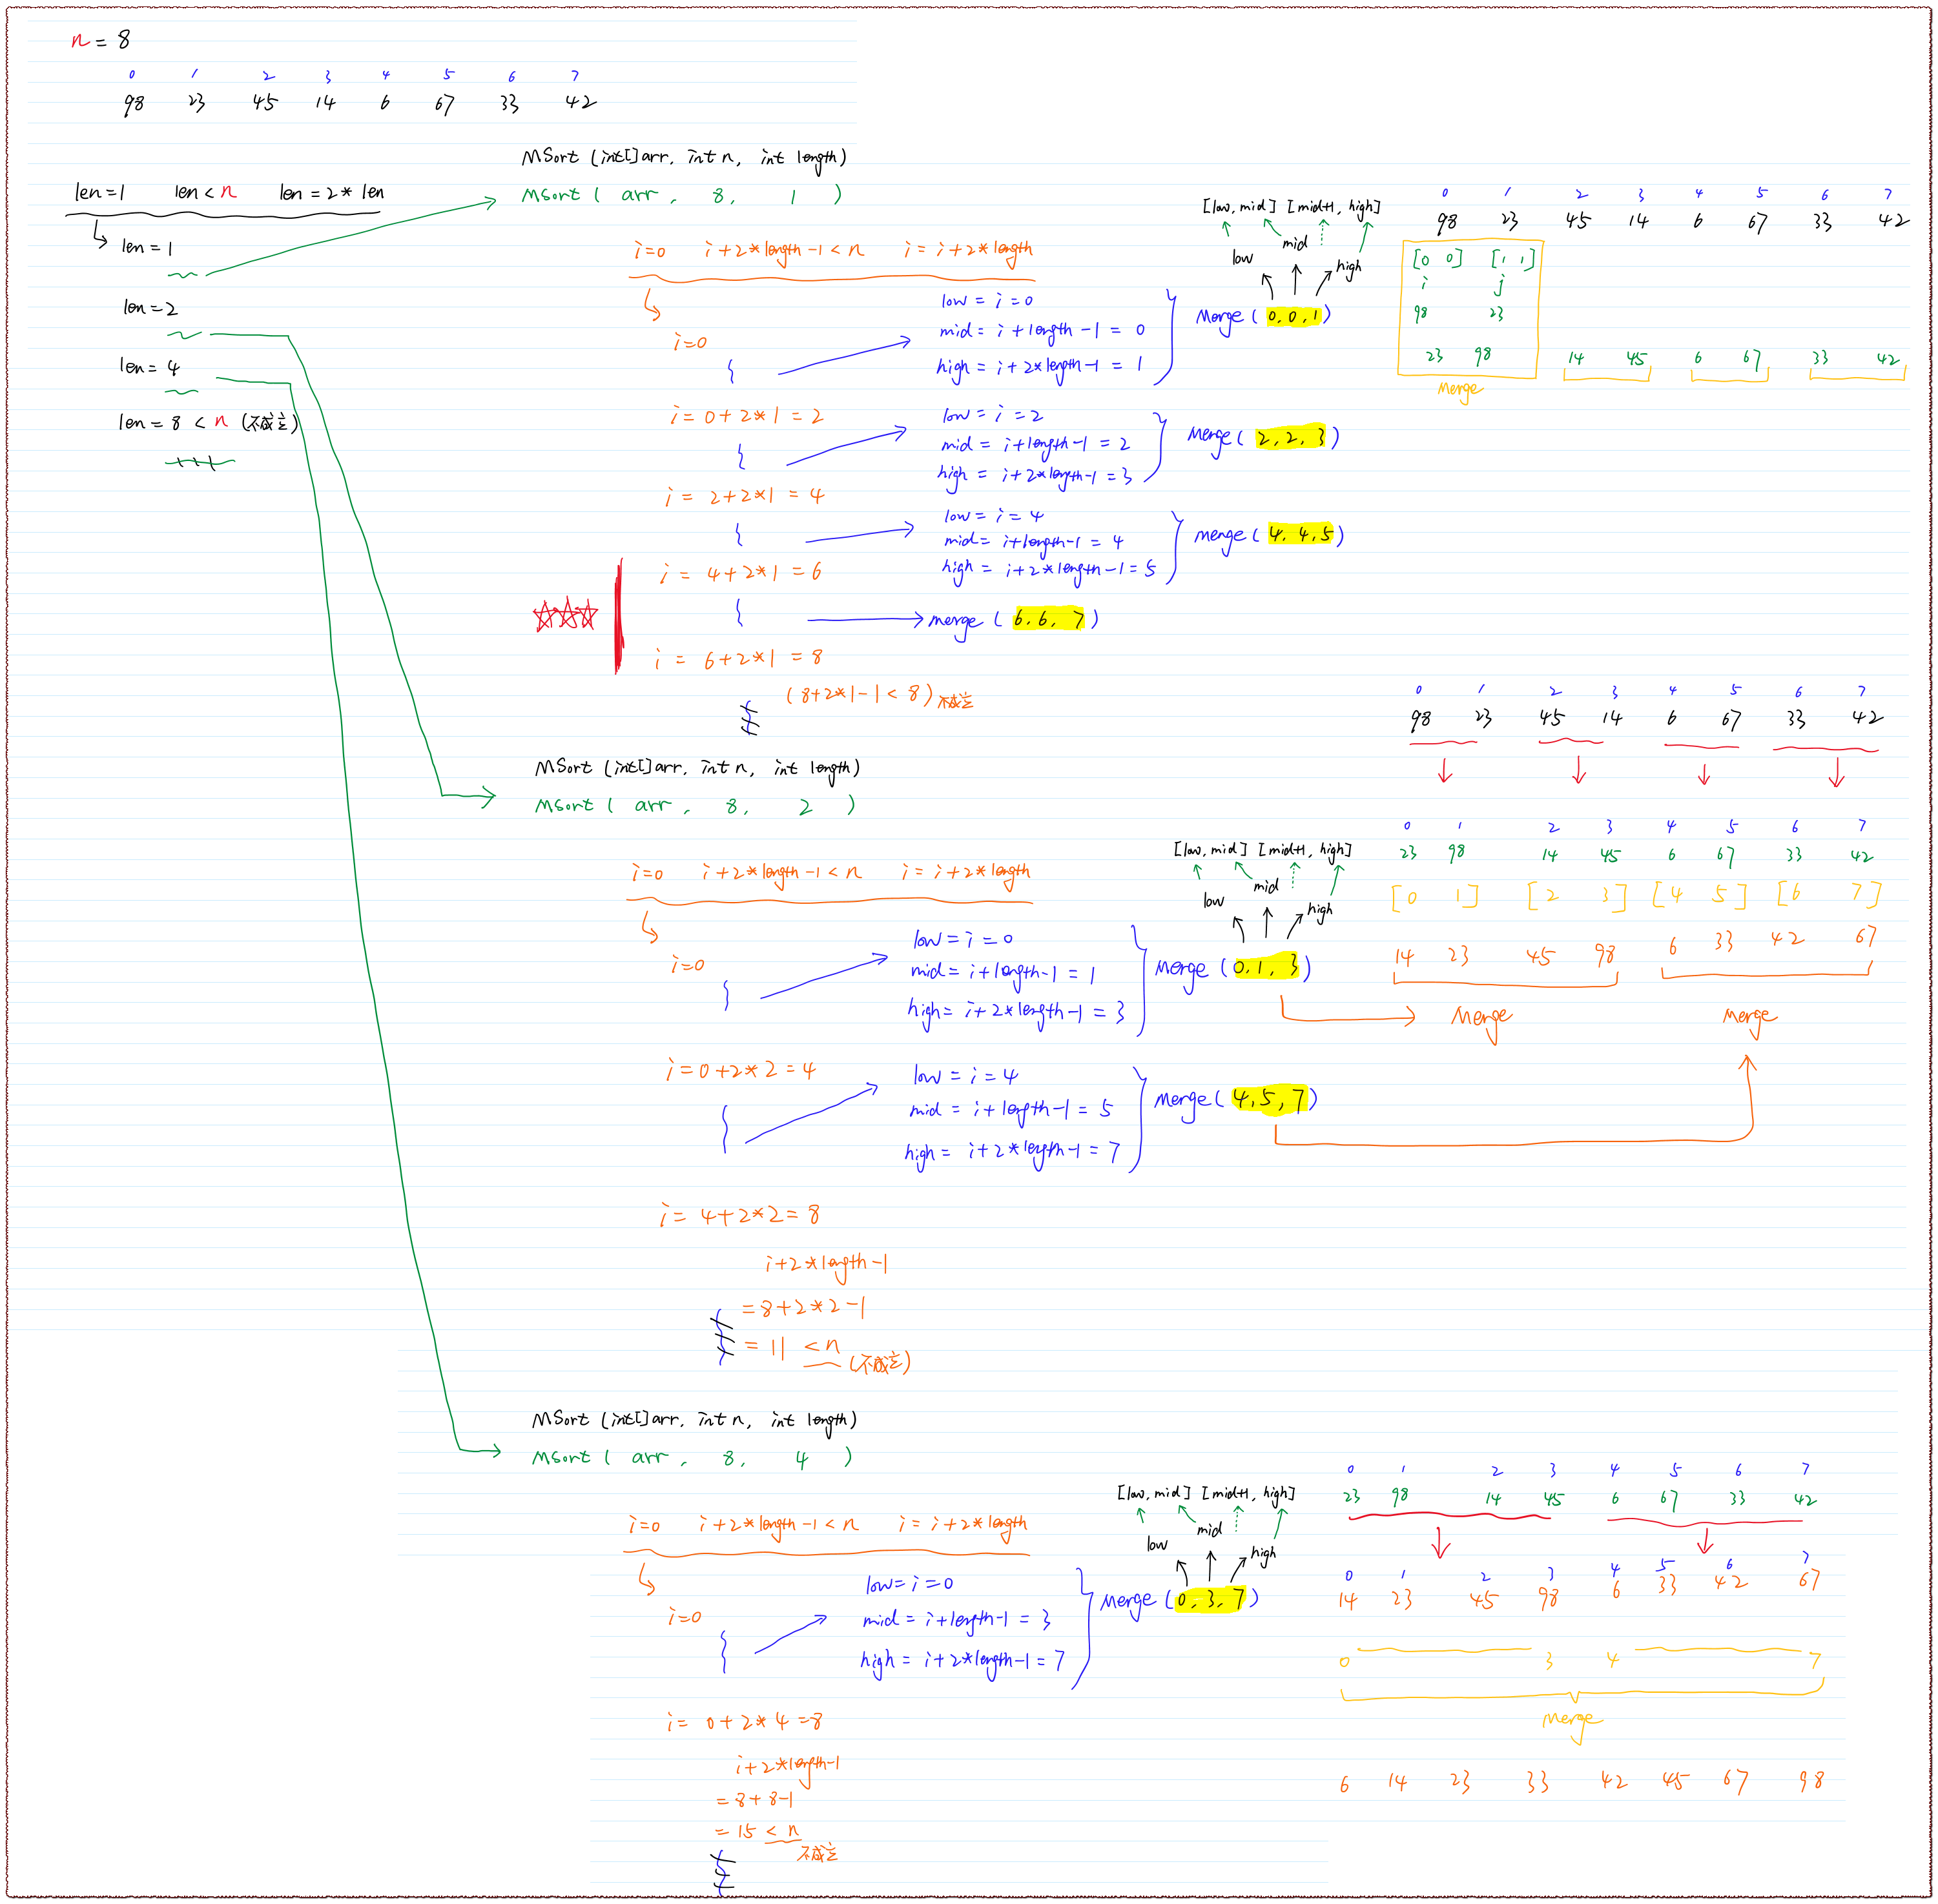 n = 8
0 1 2 3 4 5 6 7
98 23 45 14 6 67 33 42
len=1 len<n len=2*len
len=1
len=2
len=4
len=8 < n (不成立)
MSort (int[]arr, int n, int length)
MSort ( arr, 8, 1 )
i=0 i+2*length-1<n i=i+2*length
i=0
low=i=0
mid=i+length-1=0
high=i+2*length-1=1
Merge(0,0,1)
[low,mid] [mid+1,high]
low mid high
i=0+2*1=2
low=i=2
mid=i+length-1=2
high=i+2*length-1=3
Merge(2,2,3)
i=2+2*1=4
low=i=4
mid=i+length-1=4
high=i+2*length-1=5
merge(4,4,5)
i=4+2*1=6
merge(6,6,7)
i=6+2*1=8
(8+2*1-1<8)不成立
0 1 2 3 4 5 6 7
98 23 45 14 6 67 33 42
[0 0] [1 1]
i j
98 23
23 98 14 45 6 67 33 42
merge
MSort (int[]arr, int n, int length)
MSort ( arr, 8, 2 )
i=0 i+2*length-1<n i=i+2*length
i=0
low=i=0
mid=i+length-1=1
high=i+2*length-1=3
Merge(0,1,3)
[low,mid] [mid+1,high]
low mid high
i=0+2*2=4
low=i=4
mid=i+length-1=5
high=i+2*length-1=7
Merge(4,5,7)
i=4+2*2=8
i+2*length-1
=8+2*2-1
=11<n(不成立)
0 1 2 3 4 5 6 7
98 23 45 14 6 67 33 42
0 1 2 3 4 5 6 7
23 98 14 45 6 67 33 42
[0 1] [2 3] [4 5] [6 7]
14 23 45 98 6 33 42 67
Merge Merge
MSort (int[]arr, int n, int length)
MSort ( arr, 8, 4 )
i=0 i+2*length-1<n i=i+2*length
i=0
low=i=0
mid=i+length-1=3
high=i+2*length-1=7
Merge(0,3,7)
[low,mid] [mid+1,high]
low mid high
i=0+2*4=8
i+2*length-1
=8+8-1
=15<n
不成立
0 1 2 3 4 5 6 7
23 98 14 45 6 67 33 42
0 1 2 3 4 5 6 7
14 23 45 98 6 33 42 67
0 3 4 7
Merge
6 14 23 33 42 45 67 98